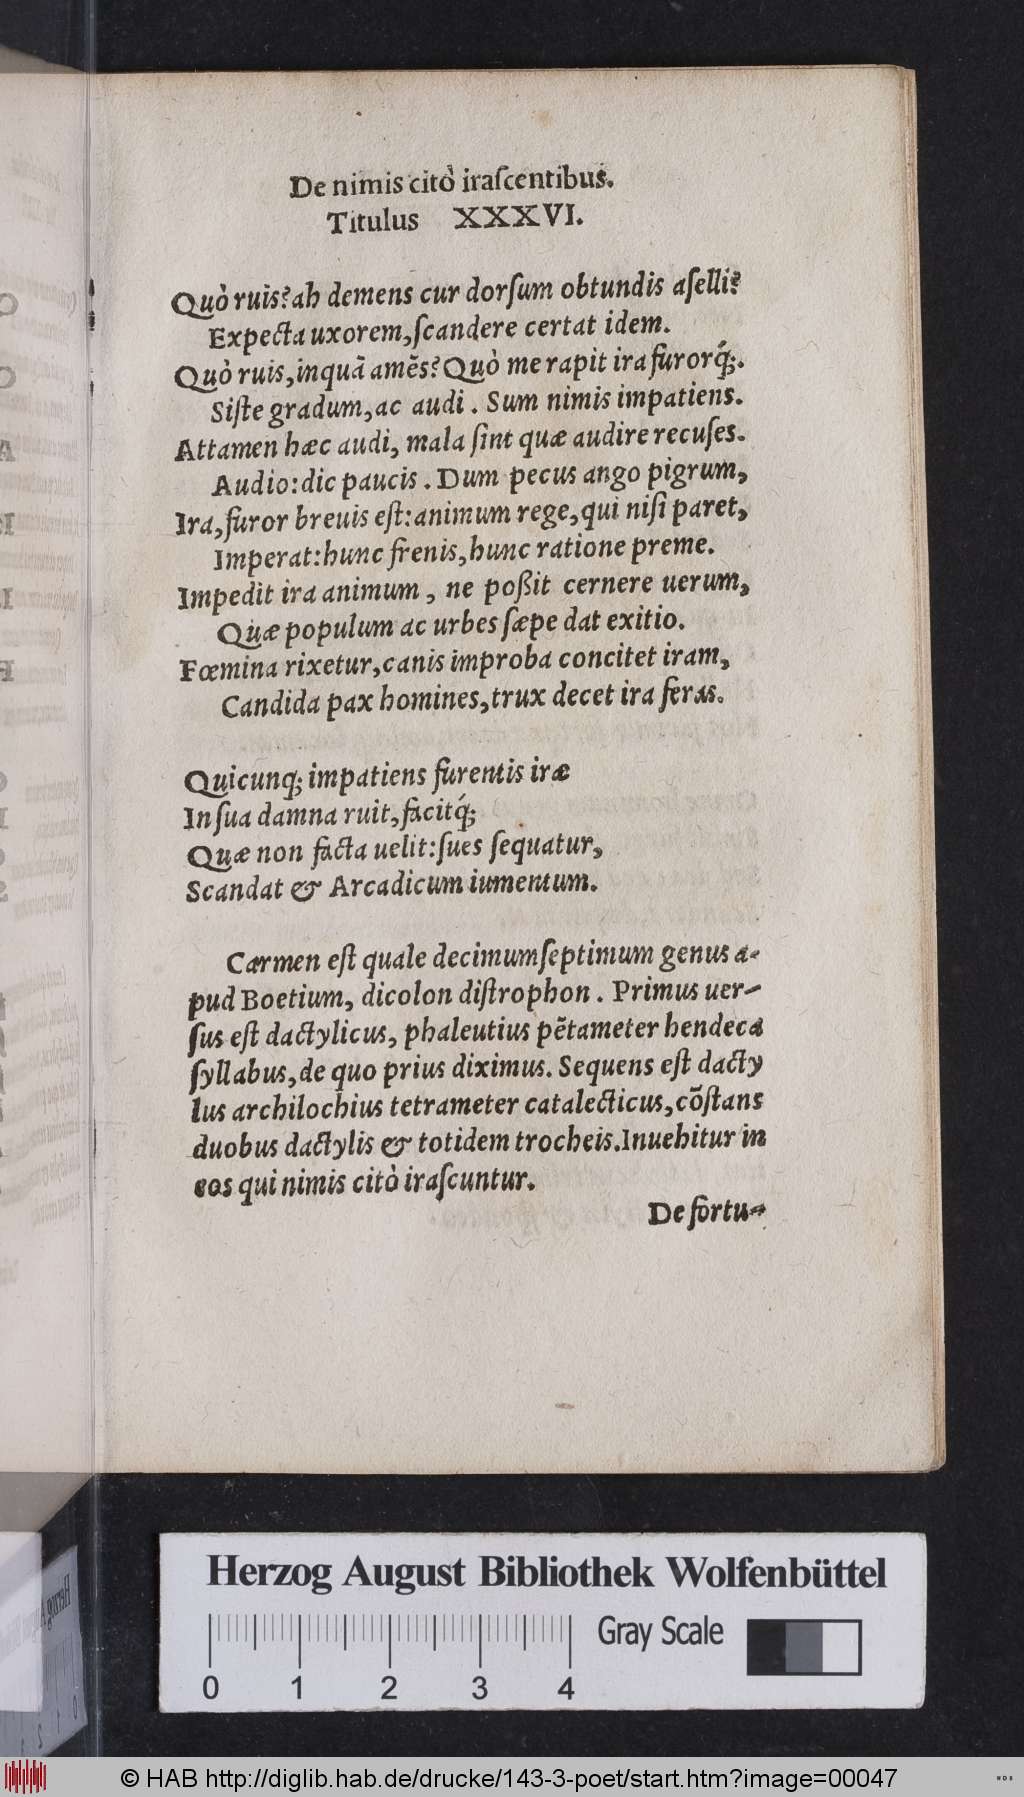 De nimis citò iraſcentibus.
Titulus XXXVI.
Quò ruis? ah demens cur dorſum obtundis aſelli?
Expecta uxorem, ſcandere certat idem.
Quò ruis, inquã amẽs? Quò me rapit ira furorq́;.
Siſte gradum, ac audi. Sum nimis impatiens.
Attamen hæc audi, mala ſint quæ audire recuſes.
Audio: dic paucis. Dum pecus ango pigrum,
Ira, furor breuis eſt: animum rege, qui niſi paret,
Imperat: hunc frenis, hunc ratione preme.
Impedit ira animum, ne poßit cernere uerum,
Quæ populum ac urbes ſæpe dat exitio.
Fœmina rixetur, canis improba concitet iram,
Candida pax homines, trux decet ira feras.
Quicunq; impatiens furentis iræ
In ſua damna ruit, facitq́;
Quæ non facta uelit: ſues ſequatur,
Scandat & Arcadicum iumentum.
Carmen eſt quale decimumſeptimum genus a-
pud Boetium, dicolon diſtrophon. Primus uer-
ſus eſt dactylicus, phaleutius pẽtameter hendeca
ſyllabus, de quo prius diximus. Sequens eſt dacty
lus archilochius tetrameter catalecticus, cõſtans
duobus dactylis & totidem trocheis. Inuehitur in
eos qui nimis citò iraſcuntur.
De fortu-
Herzog August Bibliothek Wolfenbüttel
Gray Scale
0 1 2 3 4
© HAB http://diglib.hab.de/drucke/143-3-poet/start.htm?image=00047